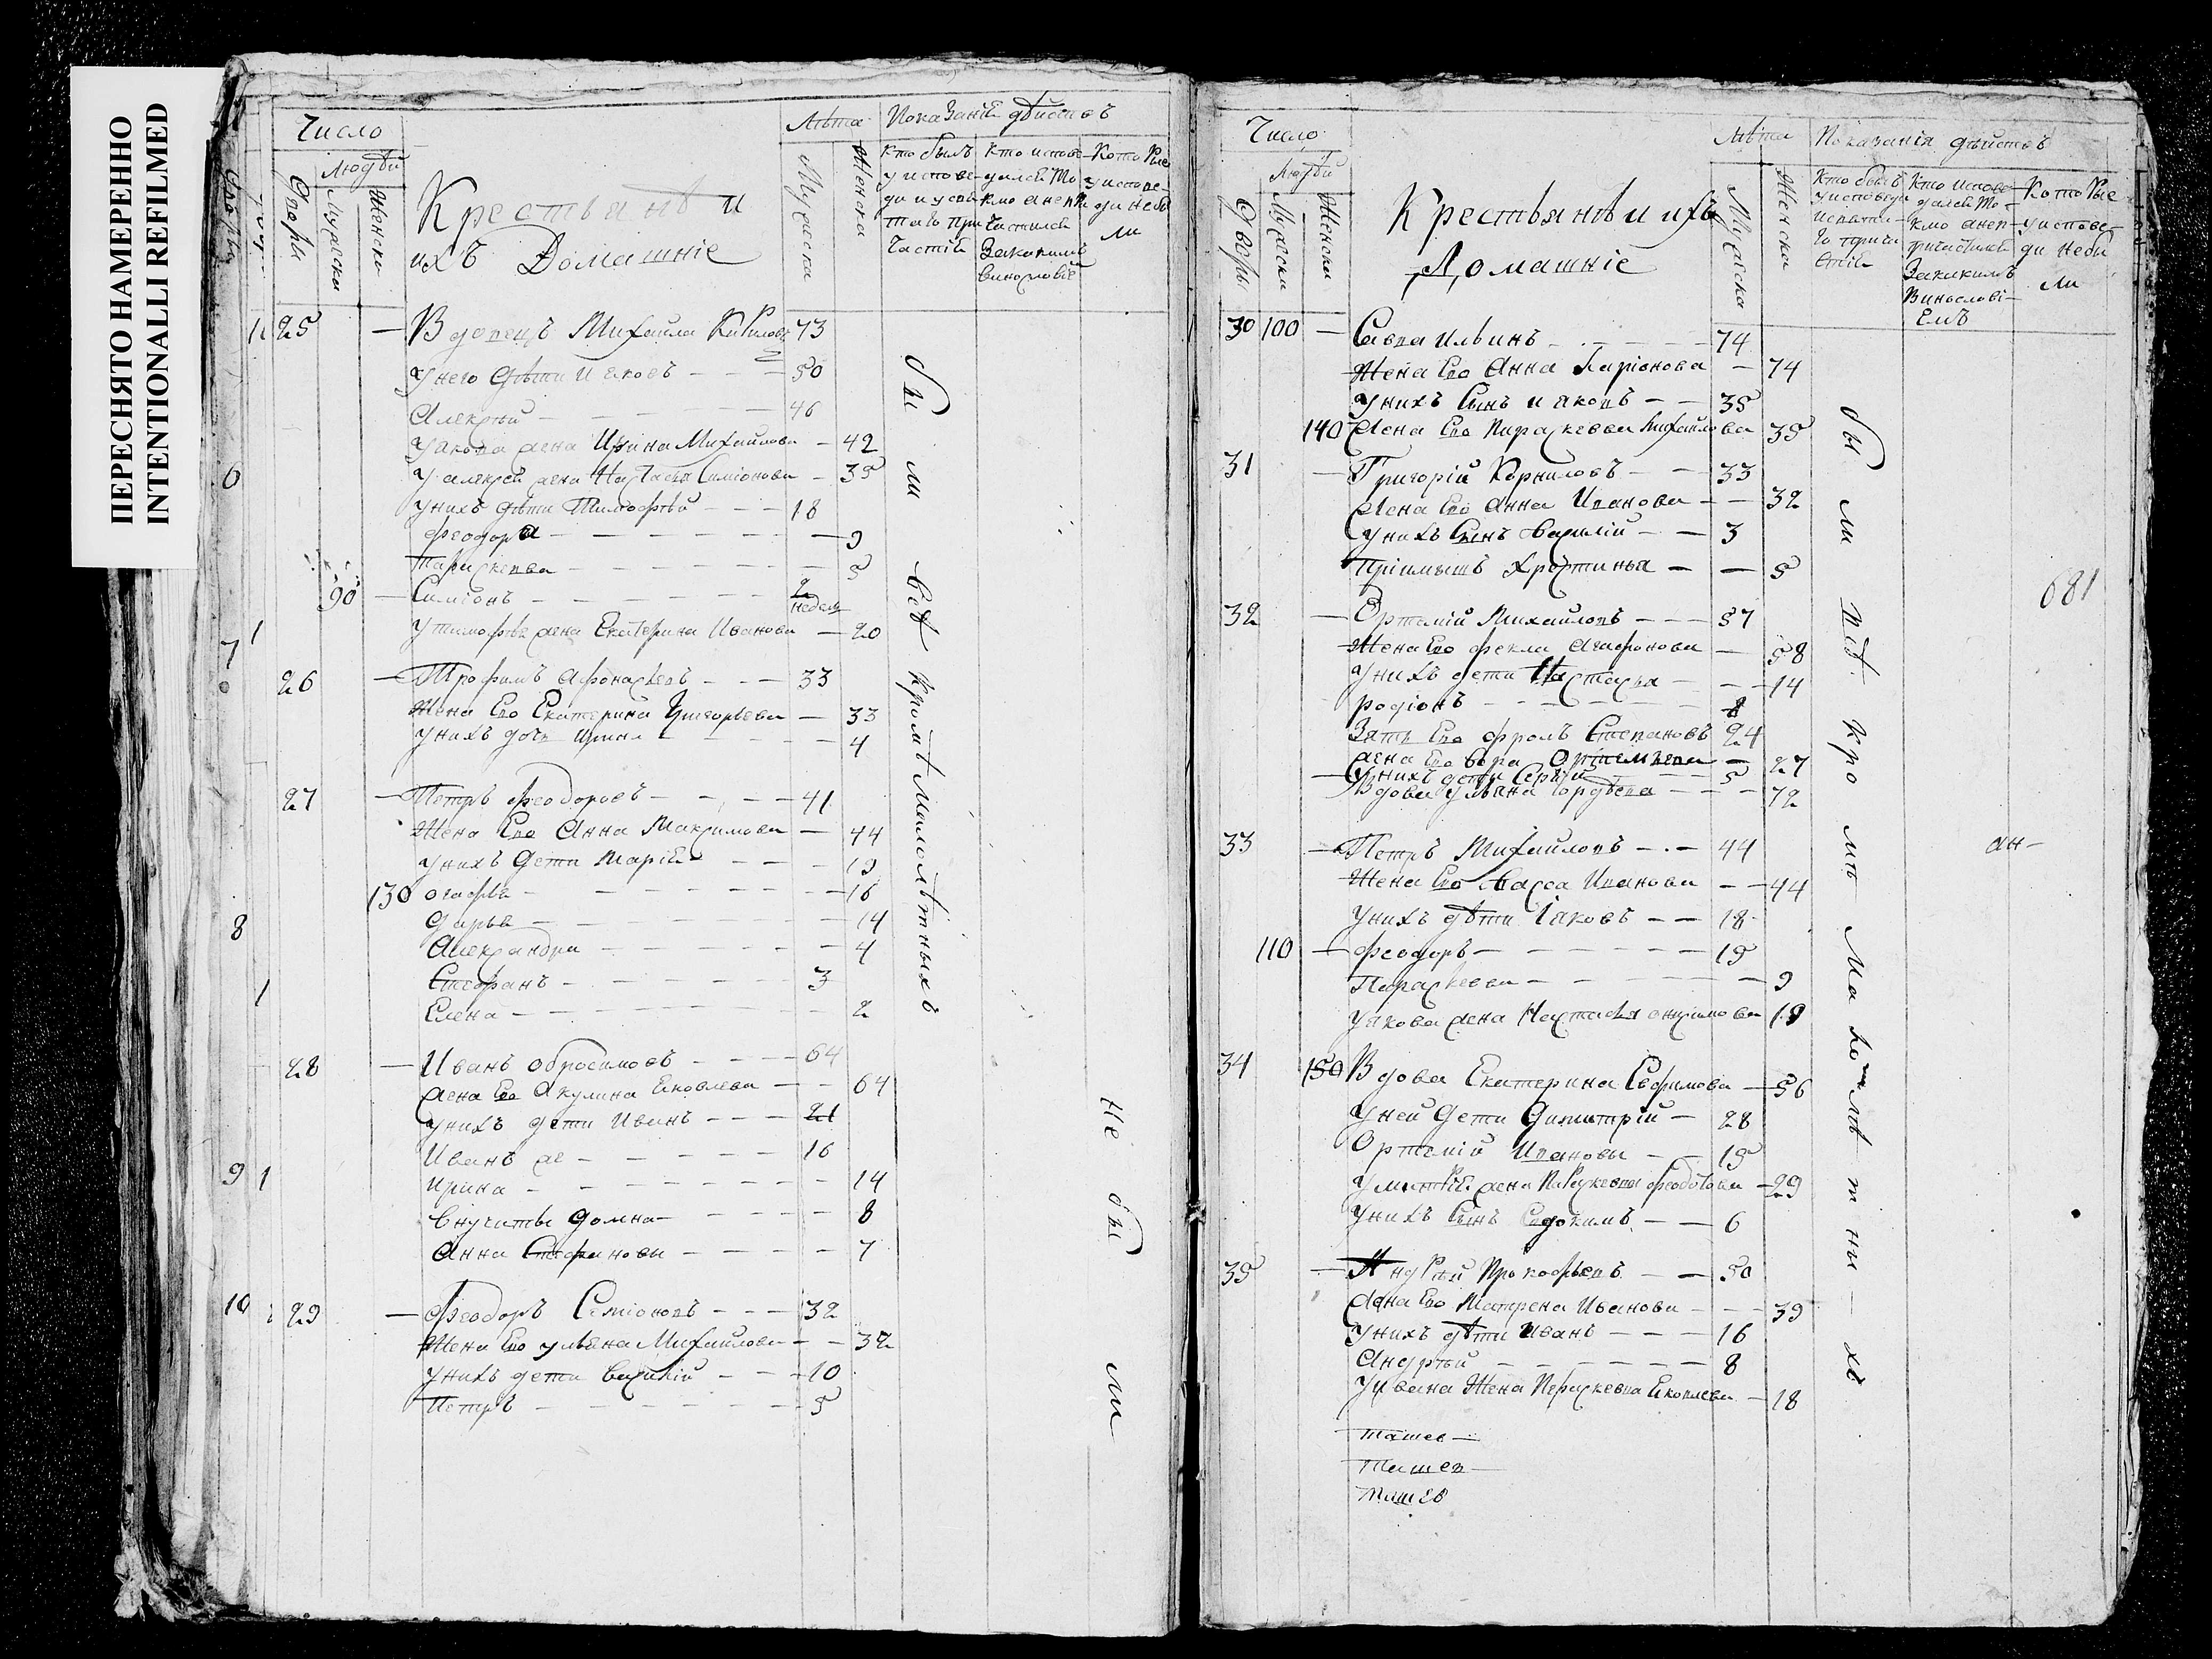 ПЕРЕСНЯТО НАМЕРЕННО
INTENTIONALLI REFILMED
Число
Людѣй
Дворы
Мужеска
Женска
Крестьянѣ и
ихъ Домашніе
Лѣта
Мужеска
Женска
Показаніе дѣйствъ
Кто былъ
у испове-
ди и у свя-
таго при
частіе
Кто испов-
дался то
кмо а непри
частился
За какимъ
винословіе
Которые
у испове-
ди не бы
ли
25 — Вдовецъ Михайла Кирилов 73
у него дѣти Иаковъ — — — 50
Алексѣй — — — — 46
у Якова жена Ирина Михайлова — 42
у алексѣя жена Настасья Симіонова — 35
у нихъ дѣти Тимофѣй — — — 18
феодора — — — — — — 9
Парасковва — — — — — — 5
90 — Симіонъ — — — — — 2 недели
у тимофѣя жена Екатерина Иванова — 20
26 — Трофимъ афонасьевъ — — — 33
Жена Ево Екатерина Григорьева — 33
у нихъ дочь ирина — — — — 4
27 — Петръ феодоровъ — — — — 41
Жена Ево Анна Максимова — 44
у нихъ дети марія — — — — 19
130 огафья — — — — — — 16
дарья — — — — — — 14
Александра — — — — — 4
Стефанъ — — — — — 3
Елена — — — — — — 2
28 — Иванъ обросимовъ — — — — 64
жена Ево Акулина Яковлева — — 64
у нихъ дети Иванъ — — — 21
Иванъ же — — — — — 16
ирина — — — — — — 14
внучаты домна — — — — 8
анна Стефанова — — — — 7
29 — Феодоръ Симіоновъ — — — 32
Жена Ево ульяна Михайлова — — 32
у нихъ дети василій — — — 10
Петръ — — — — — — 5
бы ли всѣ кромѣ малолѣтныхъ
не бы ли
6
7
8
9 1
10
Число
Людѣй
Дворы
Мужески
Женски
Крестьянѣ и ихъ
Домашніе
Лѣта
Мужеска
Женска
Показанія дѣйствъ
Кто былъ
у исповеди
и святаг
го прича
стія
Кто испове
дался то-
кмо а неп-
ричастился
За какимъ
винослові-
емъ
Которые
у испове-
ди не бы
ли
30 100 — Савва Ильинъ — — — — 74
Жена Ево Анна Ларіонова — 74
у нихъ Сынъ иаковъ — — 35
140 Жена Ево Параскевва Михайлова 35
31 — Григорій Корниловъ — — 33
Жена Ево Анна Иванова — — 32
у нихъ Сынъ Василій — — 3
Пріимышъ Христинья — — 5
32 — Ортемій Михайловъ — — — 57
Жена Ево фекла Агафонова — 58
у нихъ дети Настасья — — — 14
родіонъ — — — — — 8
Зять Ево фролъ Степановъ 24
жена Ево вера Ортемьева — 27
у нихъ дети Сергѣй — — 5
— Вдова ульяна гордѣева — — — 72
33 — Петръ Михайловъ — — — 44
Жена Ево Васса Иванова — — 44
у нихъ дѣти Іаковъ — — 18
110 — феодоръ — — — — — 15
Параскевва — — — — — 9
у якова жена Настасья анисимова 19
34 150 Вдова Екатерина Ефимова — 56
у ней дети Димитрій — 28
Ортемій Ивановы — — 15
у митрія жена Параскевва федотова — 29
у нихъ Сынъ Евдокимъ — — 6
35 — Андрѣй Прокофьевъ — — 50
Жена Ево Матрена Иванова — — — 39
у нихъ дѣти Иванъ — — — 16
Андрѣй — — — — — — 8
у ивана Жена Параскевва Яковлева — 18
бы ли всѣ кро мѣ ма лолѣ т ны — хъ
681
ан-